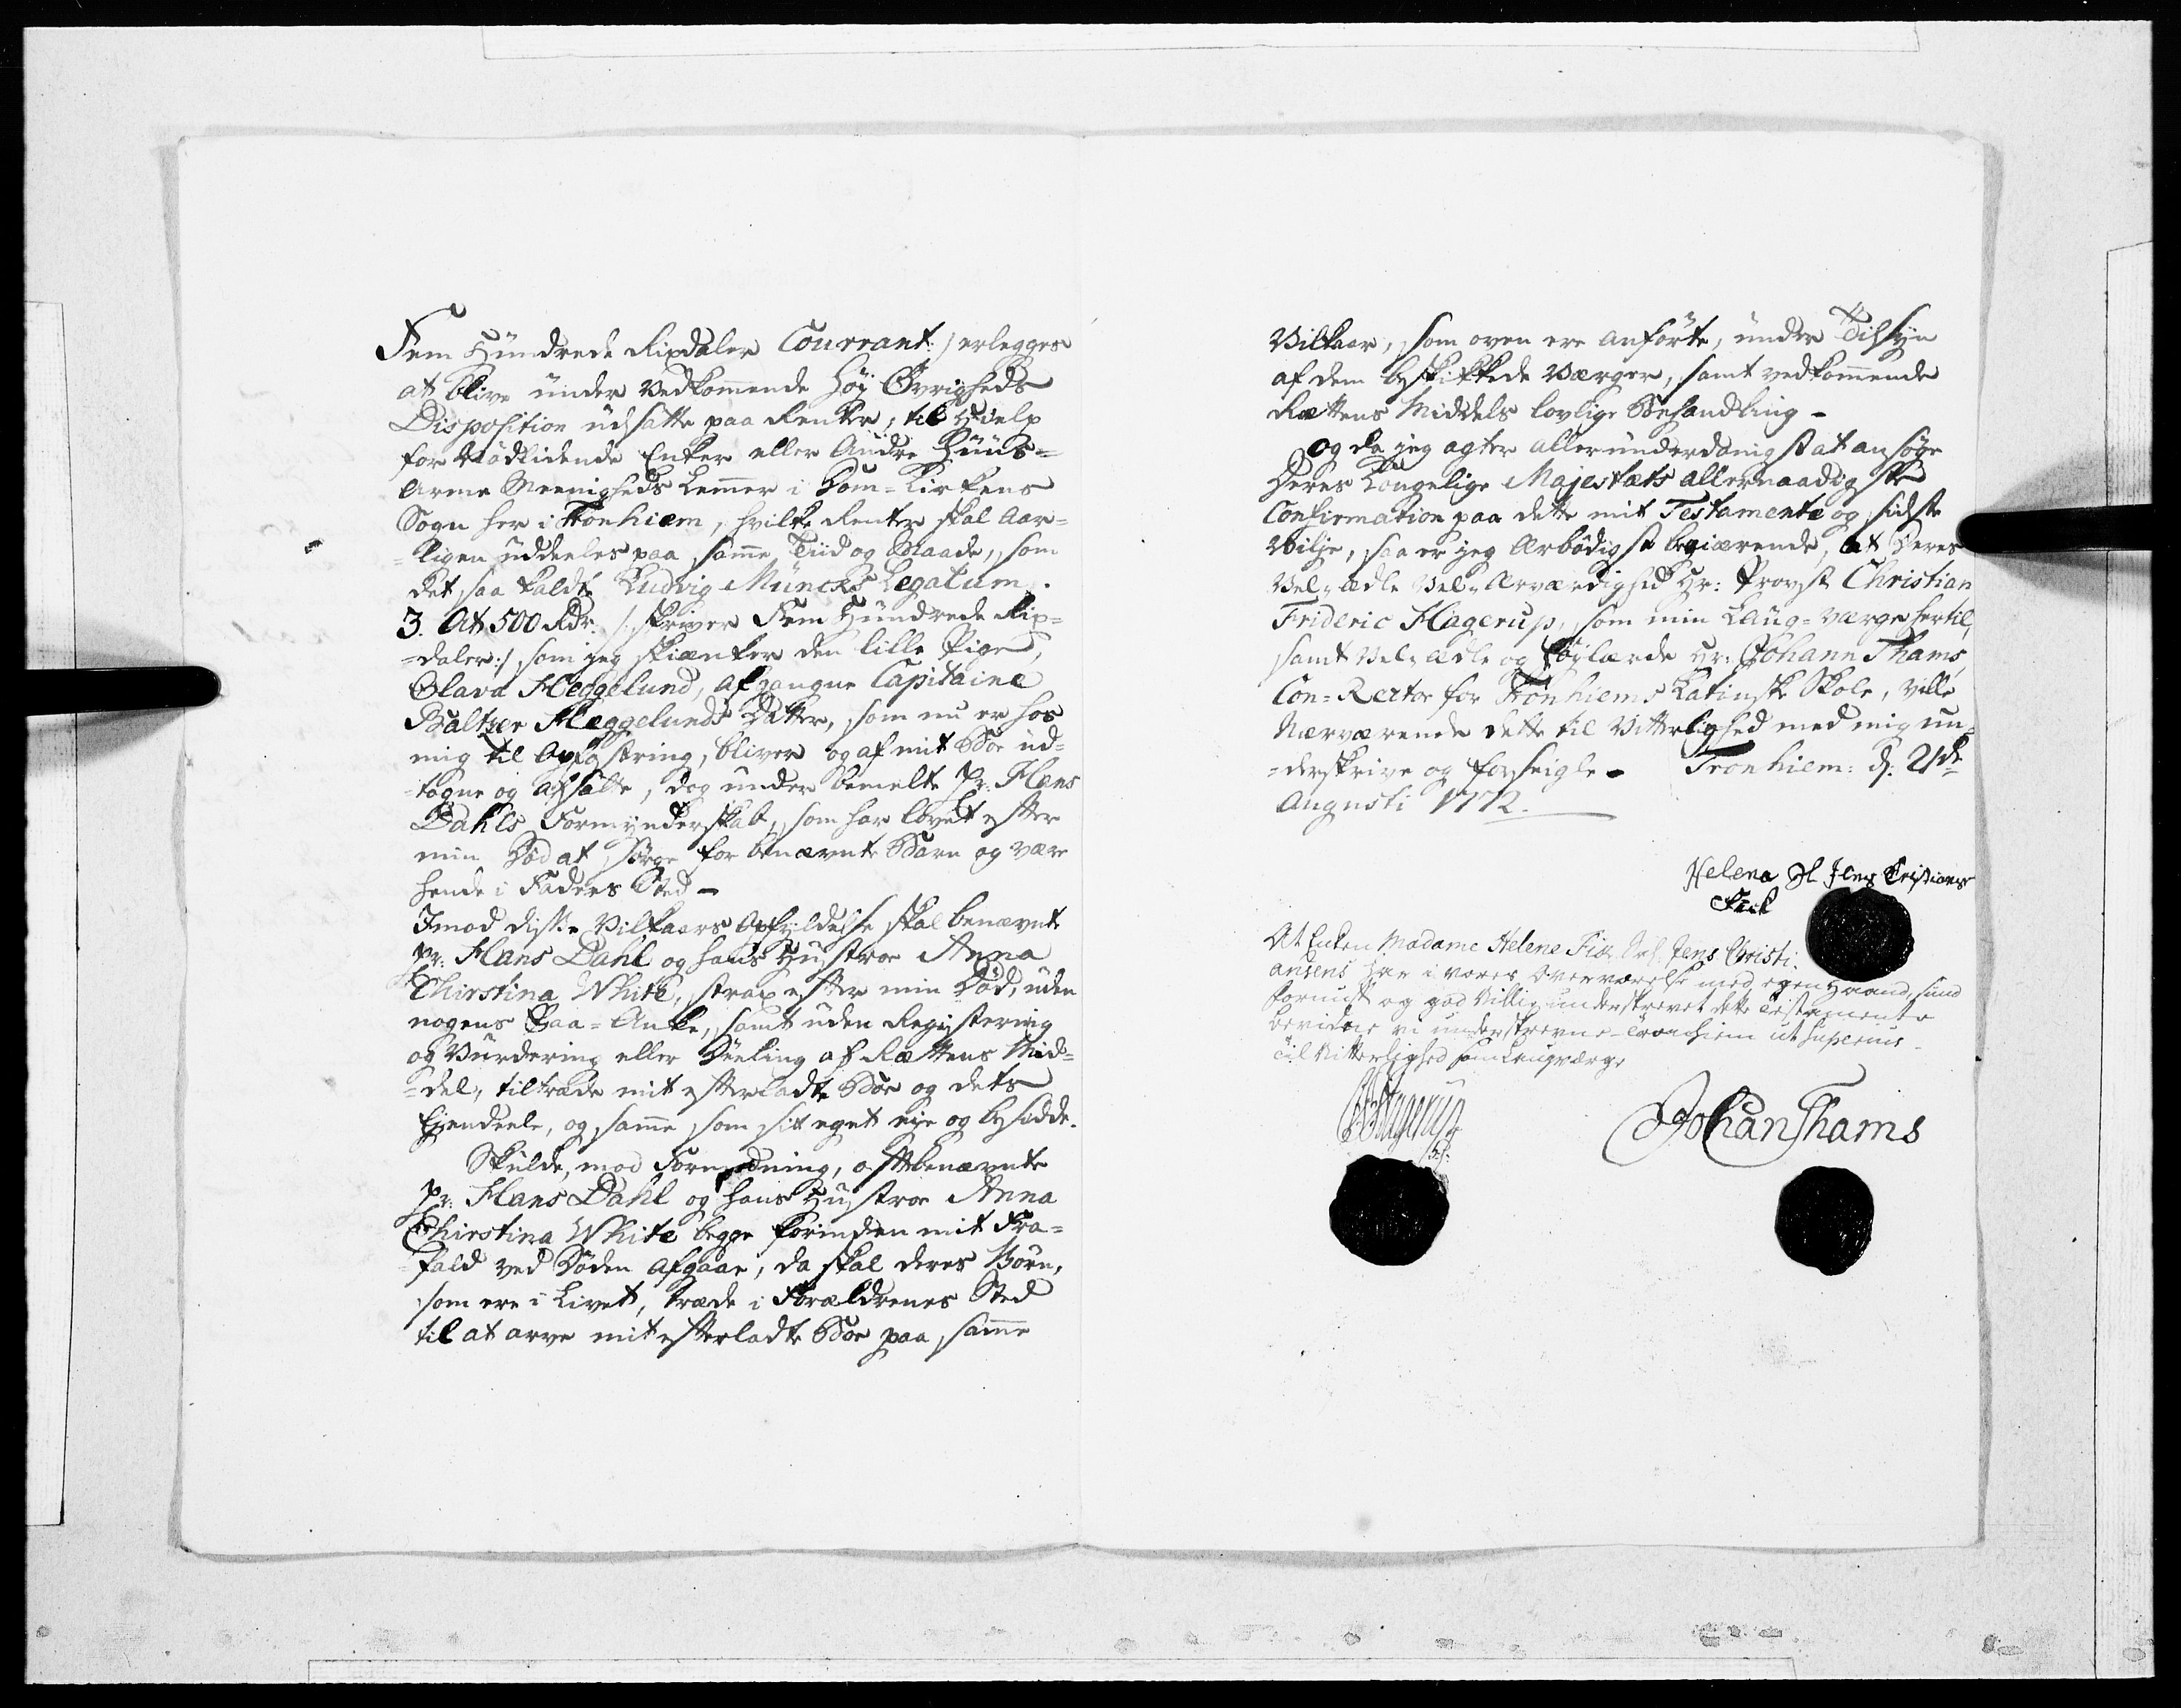 Fem Hundrede Rixdaler Courrant:/ erlegges
at blive under vedkommende Høy Øvrigheds
Disposition udsatte paa Rente, til Hielp
for Nødlidende Enker eller Andre Huus=
Arme Meenigheds Lemmer i Dom=Kirkens
Sogn her i Tronhiem, hvilke Renter skal Aar=
=ligen uddeeles paa samme Tiid og Maade, som
det saa kaldte Ludvig Müncks Legatum.
3. At 500 Rdr. /: skriver Fem Hundrede Rix=
=daler:/ som jeg skiænker den lille Pige,
Olava Heggelund, afgangne Capitaine
Baltzer Heggelunds Datter, som nu er hos
mig til Opfostring, bliver og af mit Boe ud=
=tagne og afsatte, dog under bemelte Hr: Hans
Dahls Formynderskab, som har lovet efter
min Død at sørge for benævnte Barn og være
hende i Faders Sted –
Imod disse Vilkaars Opfyldelse skal benævnte
Hr: Hans Dahl og hans Hustroe Anna
Chirstina White, strax efter min Død, uden
nogens Paa=Anke, samt uden Registering
og Vurdering eller Deeling af Rættens Mid=
=del, tiltræde mit efterladte Boe og dets
Ejendeele, og samme som sit eget eje og besidde.
Skulde, mod Formodning, oftbenævnte
Hr: Hans Dahl og hans Hustroe Anna
Chirstina White begge forinden mit Fra=
=fald ved Døden afgaae, da skal deres Børn,
som ere i Livet, træde i Forældrenes Sted
til at arve mit efterladte Boe paa samme
Vilkaar, som oven ere anførte, under Tilsyn
af dem beskikkede Værger, samt vedkommende
Rættens Middels lovlige Behandling –
Og da jeg agter allerunderdanigst at ansøge
Deres Kongelige Majestæts allernaadigste
Confirmation paa dette mit Testamente og sidste
Vilje, saa er jeg Ærbødigst begiærende, at Deres
Vel-ædle Vel-Ærværdighed Hr: Provst Christian
Frideric Hagerup, som min Laug=værge hertil,
samt Vel-ædle og Højlærde Hr: Johann Thams
Con=Rector for Tronhiems Latinske Skole, ville
Nærværende dette til Vitterlighed med mig un=
=derskrive og forseigle – Tronhiem: d: 21de
Augusti 1772.
Helena Sl Jens Cristians
Fiick
At Enken Madame Helene Fick Sal. Jens Christi=
ansens har i vores Overværelse med egen Haand, sund
Fornuft og god Villie underskrevet dette Testamente
bevidne vi underskrevne Tronhiem ut supra
Til Vitterlighed som Laugværge
CFHagerup
Johan Thams